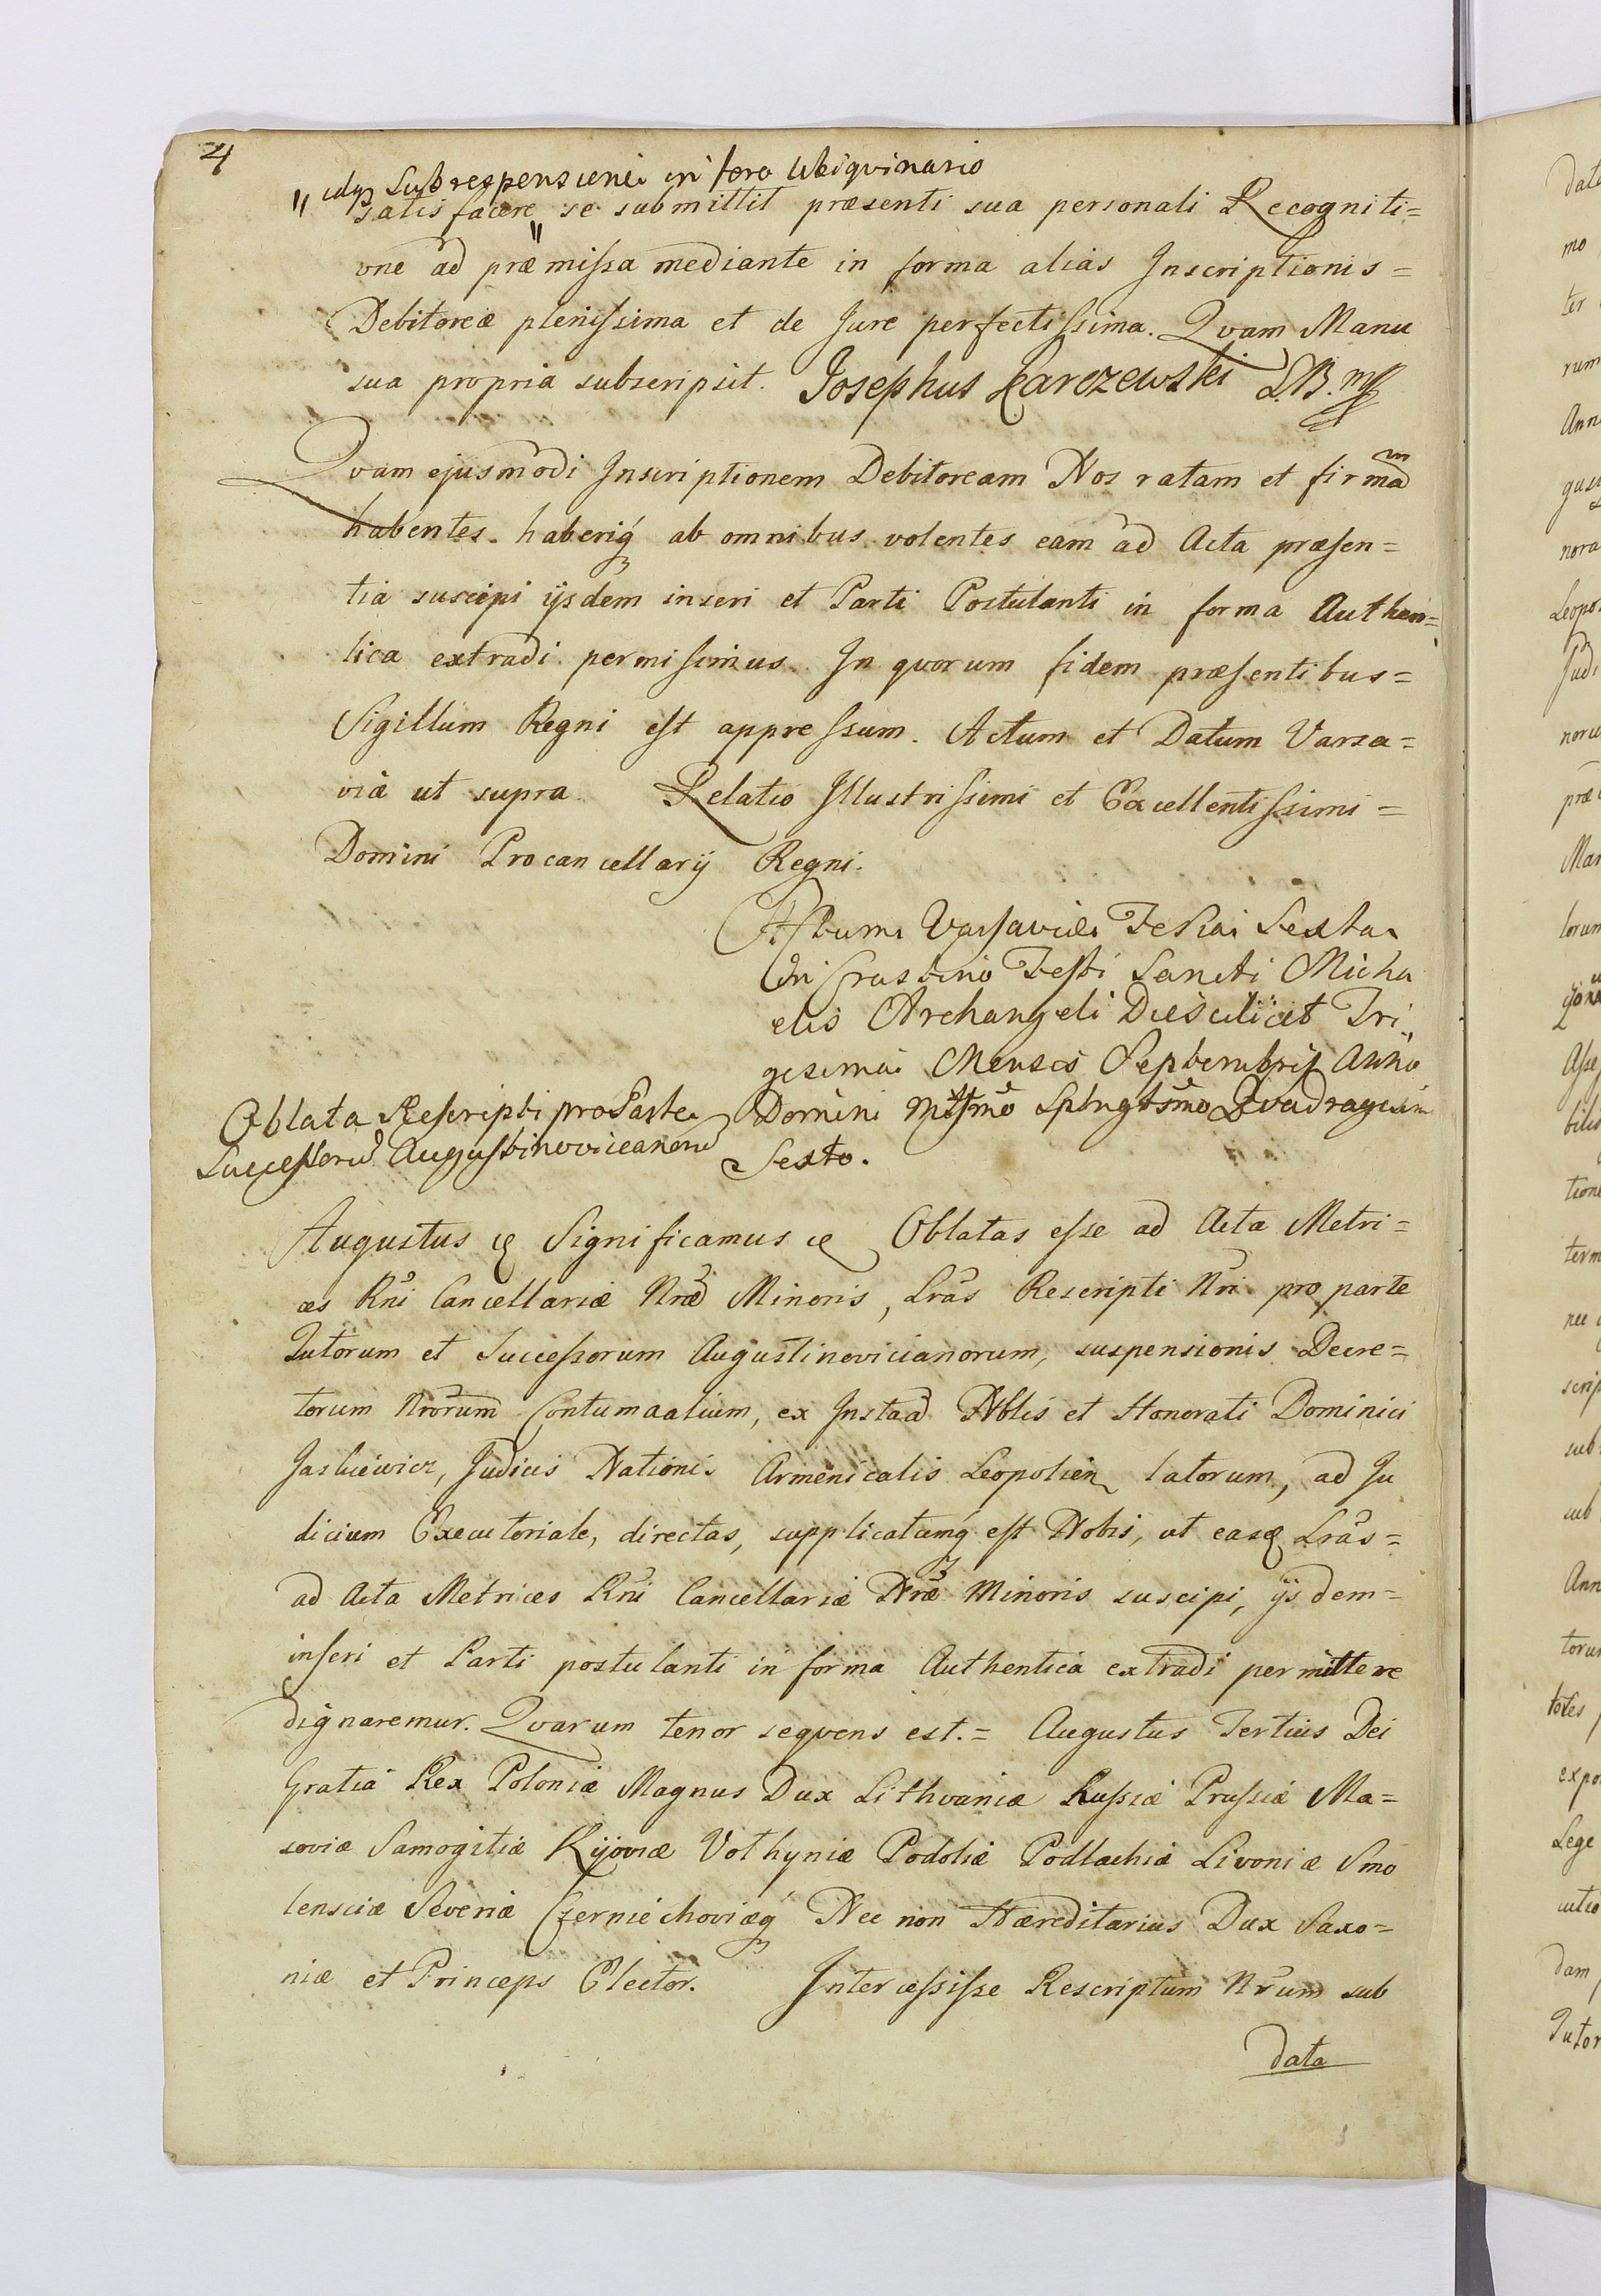 4
" idq sub responsione in foro ubiqvinario
satis facere " se submittit præsenti sua personali Recogniti=
one ad præmissa mediante in forma alias Inscriptionis=
Debitoreæ plenissima et de Jure perfectissima. Qvam Manu
sua propria subscripsit. Josephus Karczewski
Qvam ejusmodi Inscriptionem Debitoream Nos ratam et firmam
habentes. haberiq ab omnibus volentes eam ad Acta præsen=
tia suscipi ijsdem inseri et Parti Postulanti in forma Authen=
tica extradi permisimus. In qvorum fidem præsentibus=
Sigillum Regni est appressum. Actum et Datum Varsa=
viæ ut supra. Relatio Illustrissimi et Excellentissimi=
Domini Procancellarij Regni.
Actum Varsaviæ Feria Sexta
In Crastino Festi Sancti Micha
elis Archangeli Die scilicet Tri,,
gesima Mensis Septembris Anno
Domini Mttsmo Sptngtsmo Qvadragesimo
Sexto.
Oblata Rescripti pro Parte
Successorũ Augustinovicianorũ
Augustus &c Significamus &c Oblatas esse ad Acta Metri=
ces Rñi Cancellariæ Nræ Minoris, Lras Rescripti Nri pro parte
Tutorum et Successorum Augustinovicianorum, suspensionis Decre=
torum Nrorum Contumacialium, ex Instaã Nblis et Honorati Dominici
Jaskiewicz, Judicis Nationis Armenicalis Leopolien latorum, ad Ju
dicium Executoriale, directas, supplicatumq est Nobis, ut easd Lras=
ad Acta Metrices Rñi Cancellariæ Nræ Minoris suscipi, ijsdem=
inseri et Parti postulanti in forma Authentica extradi permittere
dignaremur. Qvarum tenor seqvens est.= Augustus Tertius Dei
Gratia Rex Poloniæ Magnus Dux Lithvaniæ Russiæ Prussiæ Ma=
soviæ Samogitiæ Kijoviæ Volhyniæ Podoliæ Podlachiæ Livoniæ Smo
lensciæ Severiæ Czerniechoviæq Nec non Hæreditarius Dux Saxo=
niæ et Princeps Elector. Intercessisse Rescriptum Nrum sub
data